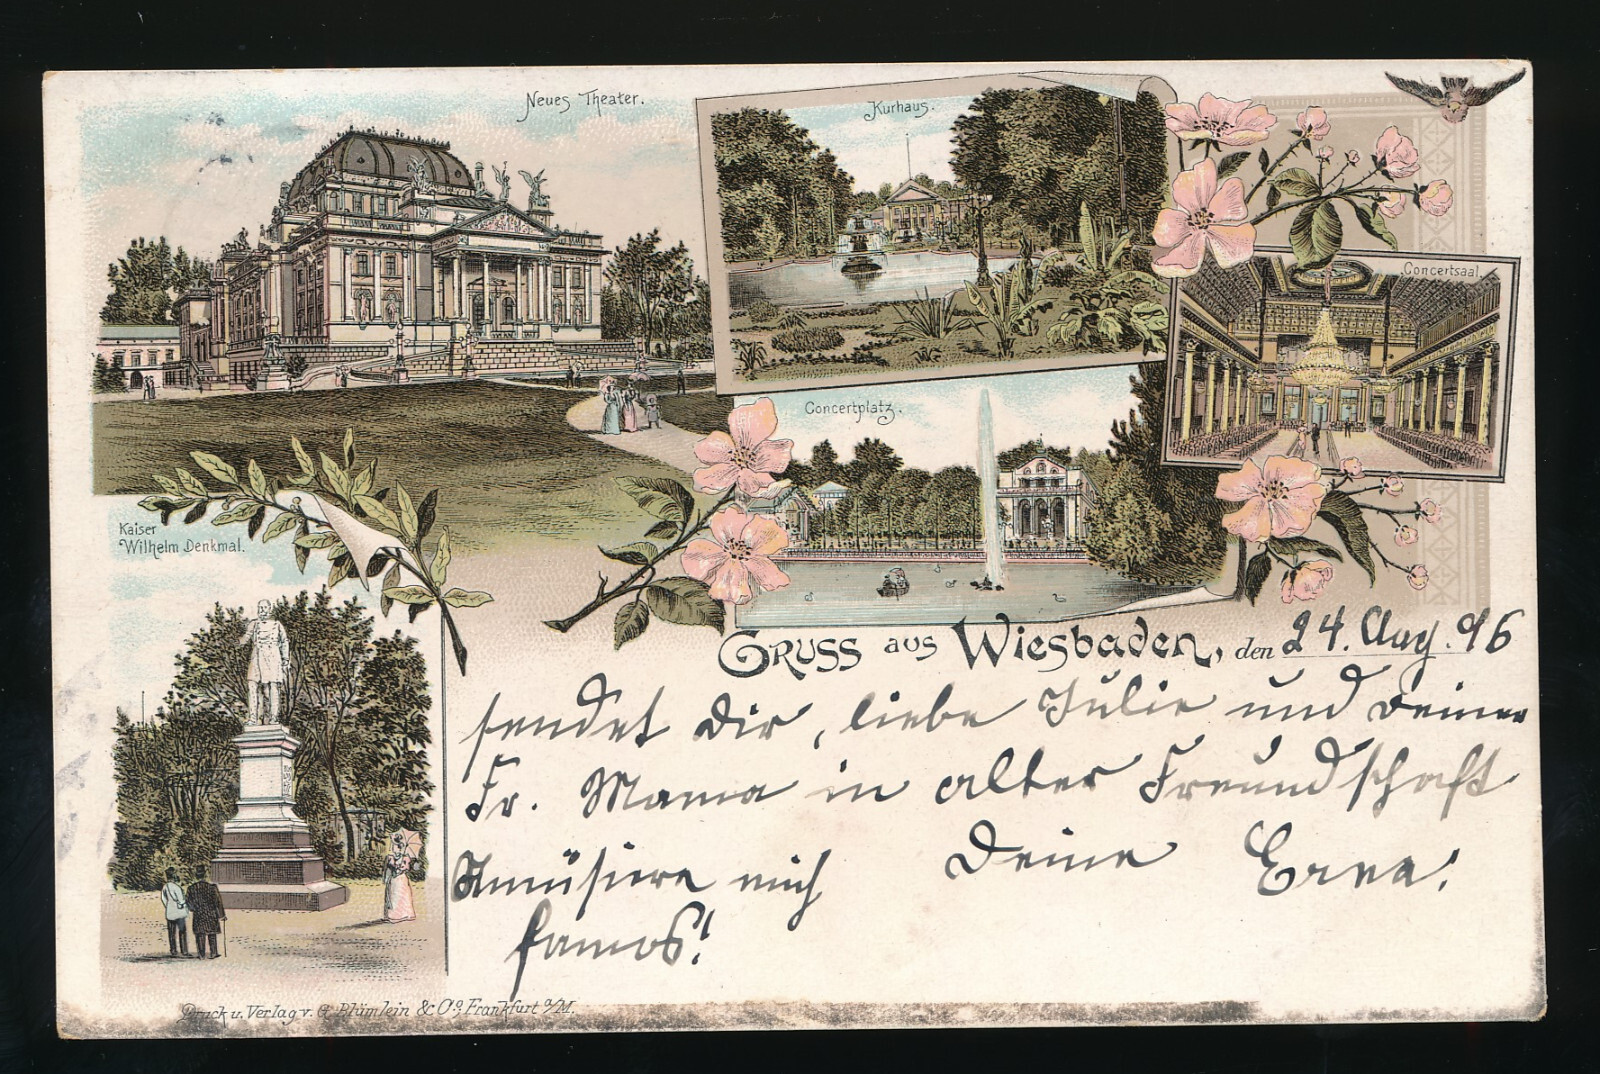 Neues Theater.
Kurhaus.
Concertsaal.
Concertplatz.
Kaiser
Wilhelm Denkmal.
Gruss aus Wiesbaden, den 24. Aug. 96
sendet Dir, liebe Julie und Deiner
Fr. Mama in alter Freundschaft
Deine Erna.
Amüsiere mich
famos!
Druck u. Verlag v. G. Blümlein & Co., Frankfurt a/M.